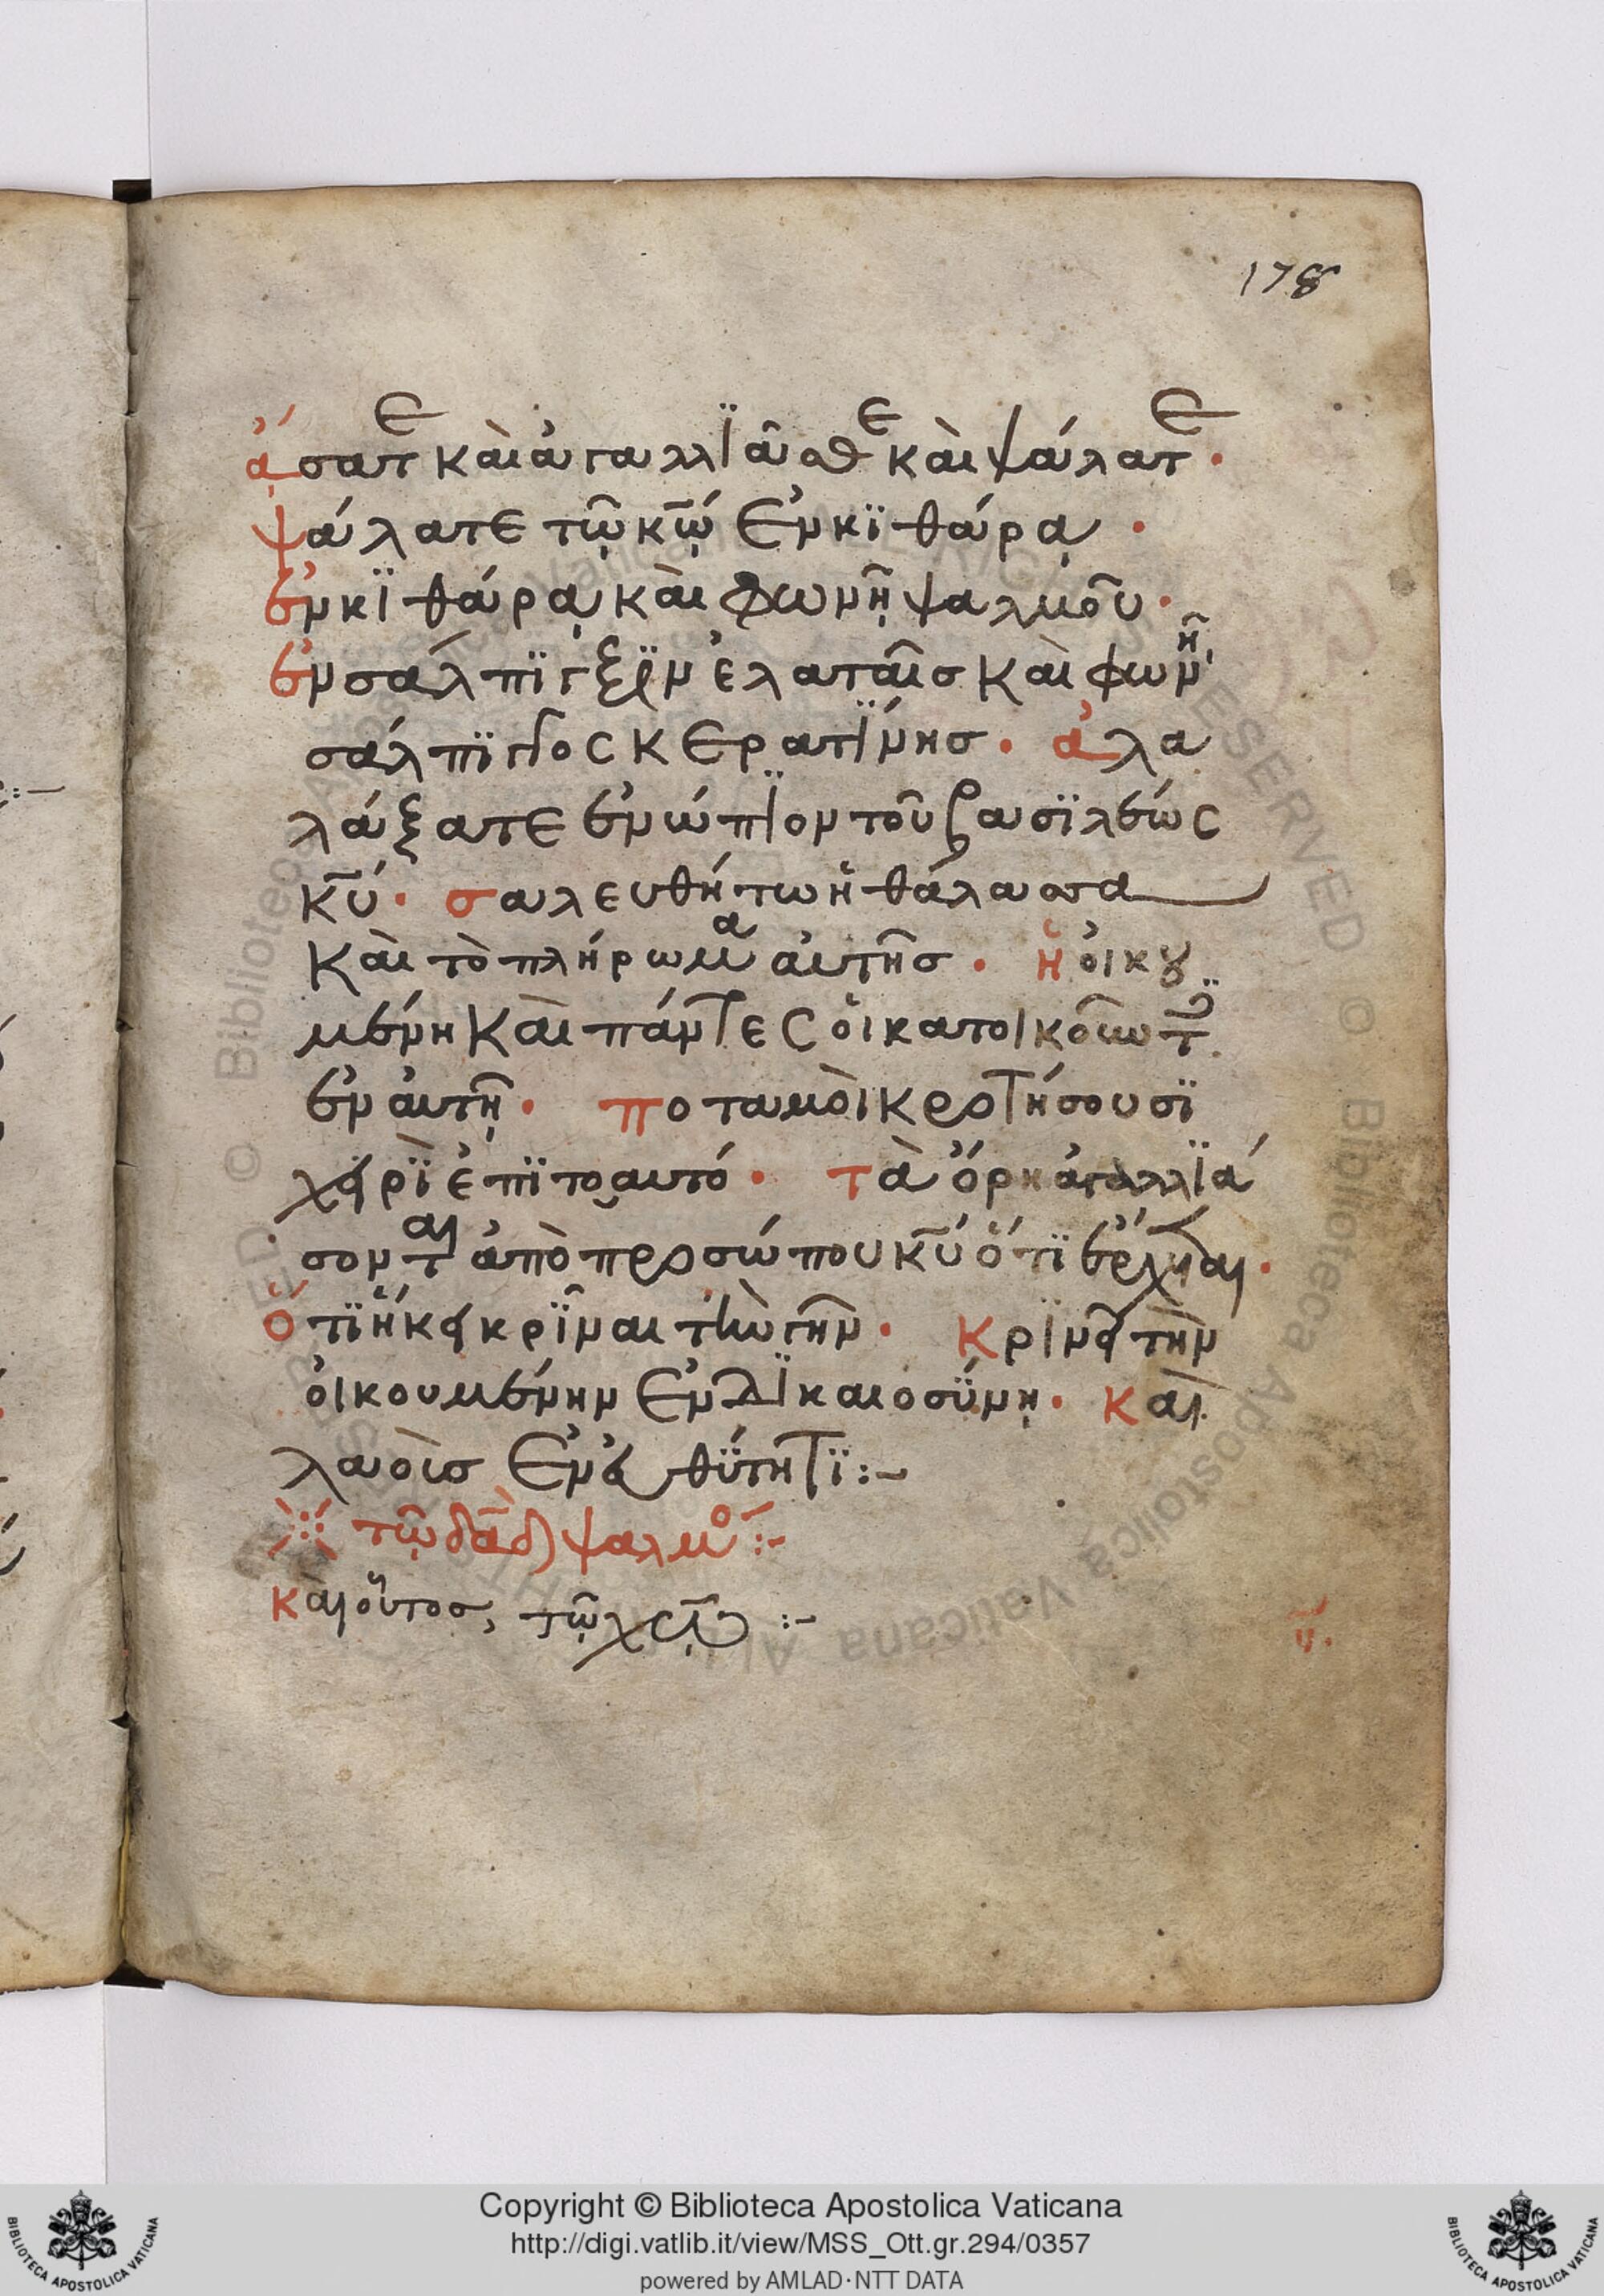 178
ἄσατε καὶ ἀγαλλϊᾶσθε καὶ ψάλατε·
ψάλατε τῷ κ̅ῷ ἐν κϊθάρᾳ·
ἐν κϊθάρᾳ καὶ φωνῇ ψαλμοῦ·
ἐν σάλπϊγξϊν ἐλαταῖσ καὶ φωνῇ
σάλπϊγγος κερατΐνησ· ἀλα
λάξατε ἐνώπϊον τοῦ βασϊλέως
κ̅ύ· σαλευθήτω ἡ θάλασσα
καὶ τὸ πλήρωμα αὐτῆσ· ἡ οἰκου
μένη καὶ πάντες οἱ κατοικοῦντες
ἐν αὐτῇ· ποταμοὶ κροτήσουσϊ
χειρῒ ἐπϊτοαυτό· τὰ ὄρη ἀγαλλϊά
σονται ἀπὸ προσώπου κ̅ύ ὅτϊ ἔρχεται·
ὅτϊ ἥκει κρῖναι τὴν γῆν· κρϊνεῖ τὴν
οἰκουμένην ἐν δϊκαιοσΰνῃ· καὶ
λαοὺσ ἐν εὐθΰτητϊ:–
τῷ δ̅α̅δ̅ ψαλμὸ:–
καὶ οὗτοσ, τῷ χ̅ῷ:–
Copyright © Biblioteca Apostolica Vaticana
http://digi.vatlib.it/view/MSS_Ott.gr.294/0357
powered by AMLAD·NTT DATA